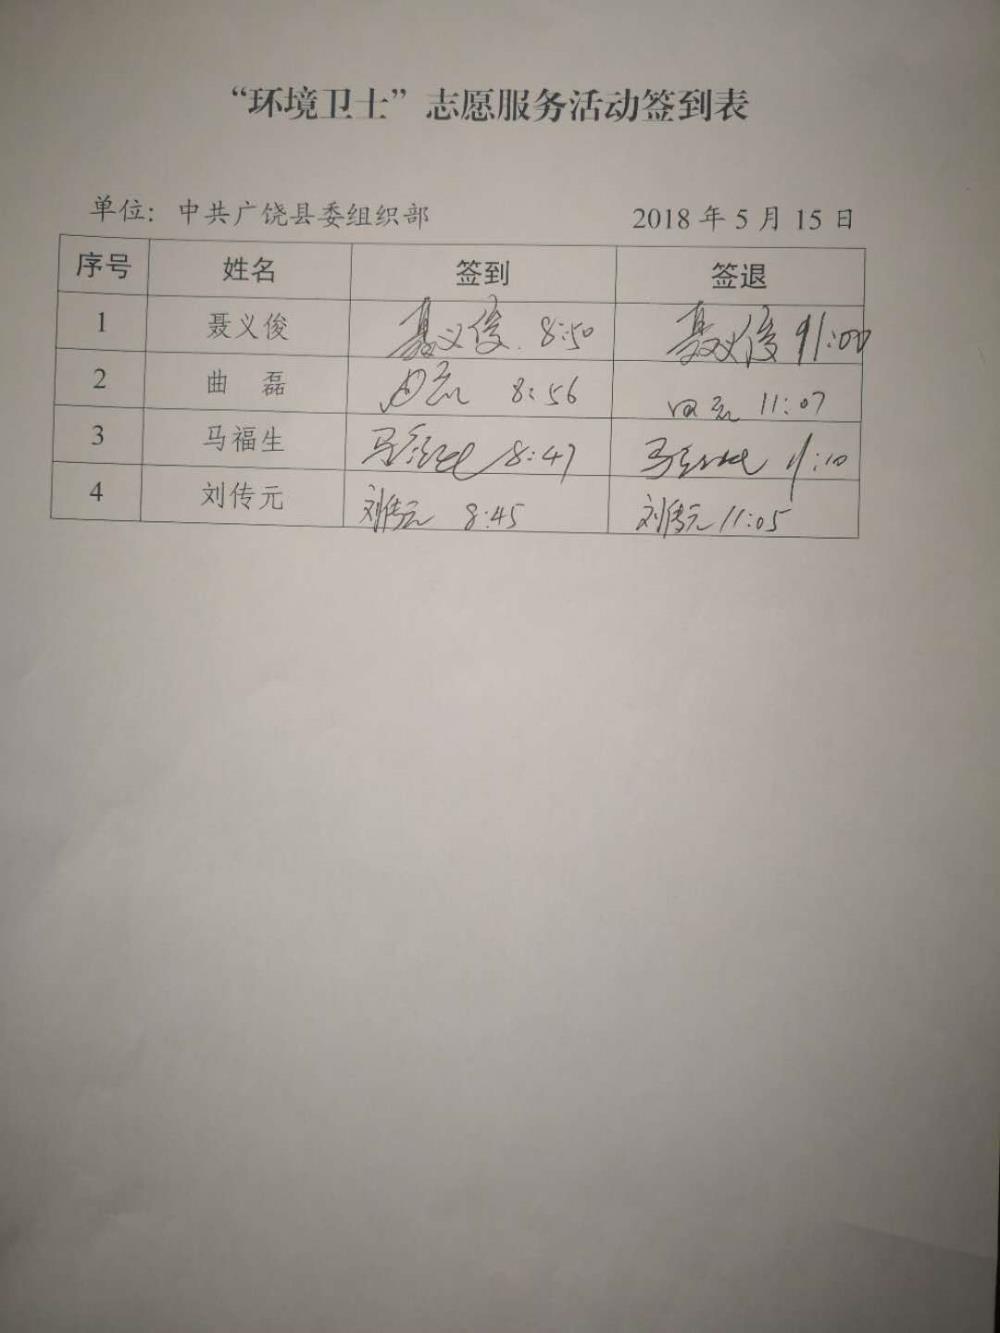 “环境卫士”志愿服务活动签到表
单位：中共广饶县委组织部 2018 年 5 月 15 日
序号 姓名 签到 签退
1 聂义俊 聂义俊 8:50 聂义俊 11:00
2 曲 磊 曲磊 8:56 曲磊 11:07
3 马福生 马福生 8:47 马福生 11:10
4 刘传元 刘传元 8:45 刘传元 11:05